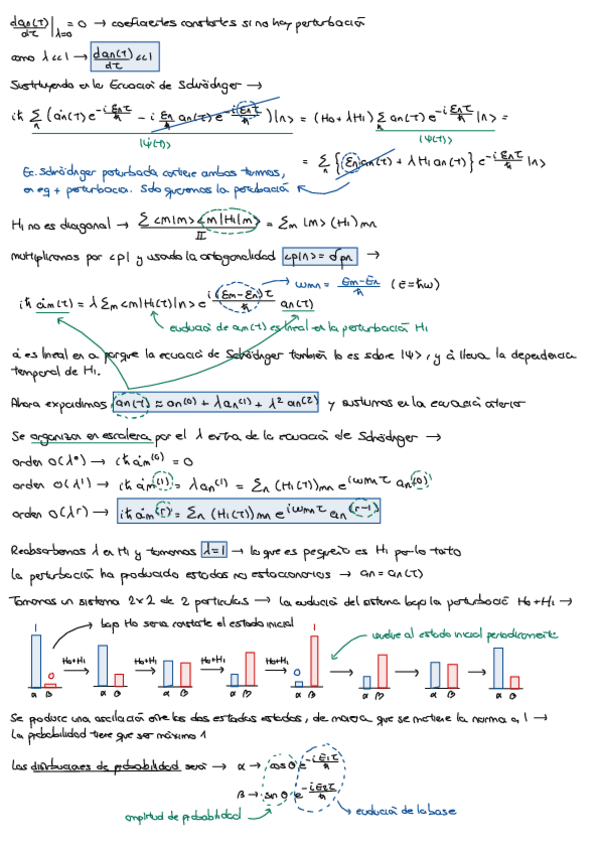 dan(τ)/dτ |λ=0 = 0 → coeficientes constantes si no hay perturbación
como λ<<1 → dan(τ)/dτ <<1
Sustituyendo en la Ecuación de Schrödinger →
iħ Σn (ȧn(τ) e^(-iEnτ/ħ) - i En/ħ an(τ) e^(-iEnτ/ħ)) |n> = (H0 + λH1) Σn an(τ) e^(-iEnτ/ħ) |n> =
|ψ̇(τ)> |ψ(τ)>
= Σn {En an(τ) + λ H1 an(τ)} e^(-iEnτ/ħ) |n>
Ec. Schrödinger perturbada contiene ambos términos,
en eq + perturbación. Solo queremos la perturbación
H1 no es diagonal → Σ <m|m> <m|H1|m> = Σm |m> (H1)mn
II
multiplicamos por <p| y usando la ortogonalidad <p|n> = δpn →
iħ ȧm(τ) = λ Σm <m|H1(τ)|n> e^(i(Em-En)τ/ħ) an(τ)
ωmn = Em-En/ħ (E=ħω)
evolución de am(τ) es lineal en la perturbación H1
ȧ es lineal en a porque la ecuación de Schrödinger también lo es sobre |ψ>, y ȧ lleva la dependencia
temporal de H1.
Ahora expandimos an(τ) ≈ an(0) + λ an(1) + λ² an(2) y sustituimos en la ecuación anterior
Se organizan en escalera por el λ extra de la ecuación de Schrödinger →
orden O(λ⁰) → iħ ȧm(0) = 0
orden O(λ¹) → iħ ȧm(1) = λan(1) = Σn (H1(τ))mn e^(iωmnτ) an(0)
orden O(λr) → iħ ȧm(r) = Σn (H1(τ))mn e^(iωmnτ) an(r-1)
Reabsorbemos λ en H1 y tomamos λ=1 → lo que es pequeño es H1 por lo tanto
la perturbación ha producido estados no estacionarios → an = an(τ)
Tomamos un sistema 2x2 de 2 partículas → la evolución del sistema bajo la perturbación H0+H1 →
1 bajo H0 sería constante el estado inicial 1 vuelve al estado inicial periódicamente
0 H0+H1 H0+H1 H0+H1 H0+H1 0
α β α β α β α β α β α β α β α β
Se produce una oscilación entre los dos estados estados, de manera que se mantiene la norma a 1 →
la probabilidad tiene que ser máximo 1
Las distribuciones de probabilidad serán → α → cosθ e^(-iE1τ/ħ)
β → sinθ e^(-iE2τ/ħ)
amplitud de probabilidad evolución de la base